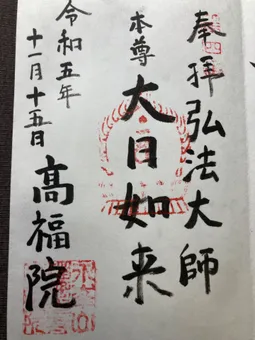 奉拝弘法大師
本尊
大日如来
令和五年
十一月十五日
高福院